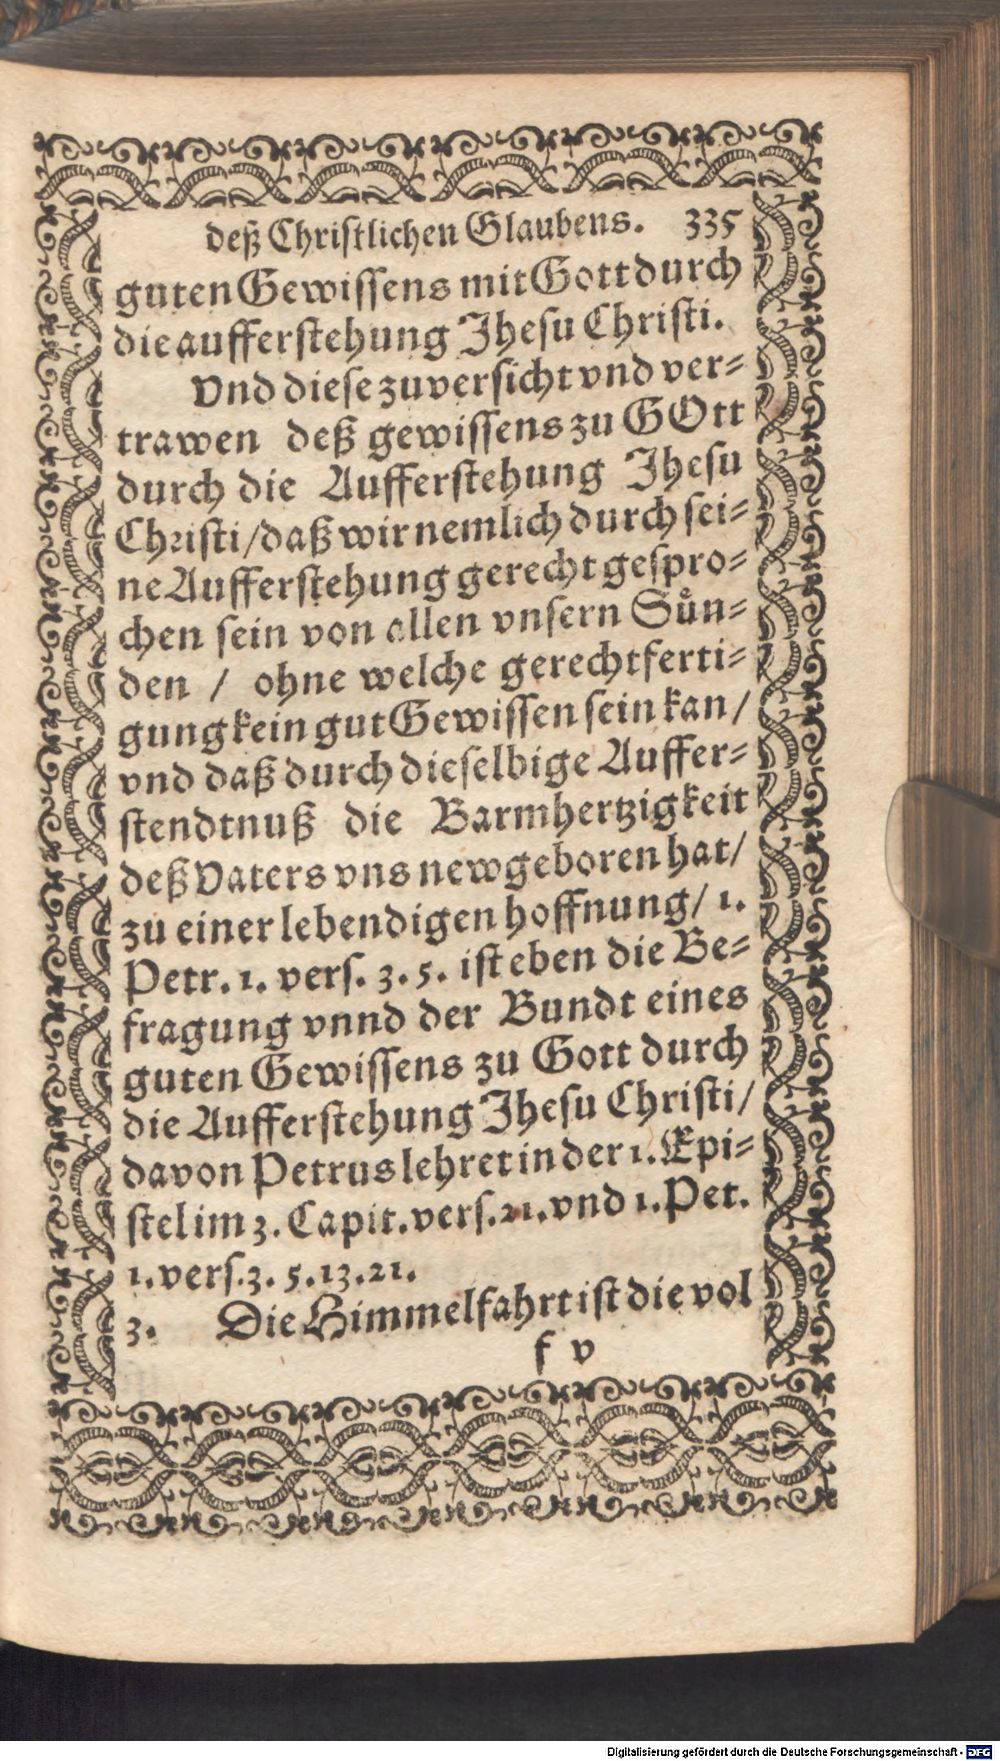 deß Christlichen Glaubens. 335
guten Gewissens mit Gott durch
die aufferstehung Jhesu Christi.
Vnd diese zuversicht vnd ver-
trawen deß gewissens zu GOtt
durch die Aufferstehung Jhesu
Christi/ daß wir nemlich durch sei-
ne Aufferstehung gerecht gespro-
chen sein von allen vnsern Sůn-
den / ohne welche gerechtferti-
gung kein gut Gewissen sein kan/
vnd daß durch dieselbige Auffer-
stendtnuß die Barmhertzigkeit
deß Vaters vns newgeboren hat/
zu einer lebendigen hoffnung/ 1.
Petr. 1. vers. 3. 5. ist eben die Be-
fragung vnnd der Bundt eines
guten Gewissens zu Gott durch
die Aufferstehung Jhesu Christi/
davon Petrus lehret in der 1. Epi-
stel im 3. Capit. vers. 21. vnd 1. Pet.
1. vers. 3. 5. 13. 21.
3. Die Himmelfahrt ist die vol
f v
Digitalisierung gefördert durch die Deutsche Forschungsgemeinschaft - DFG